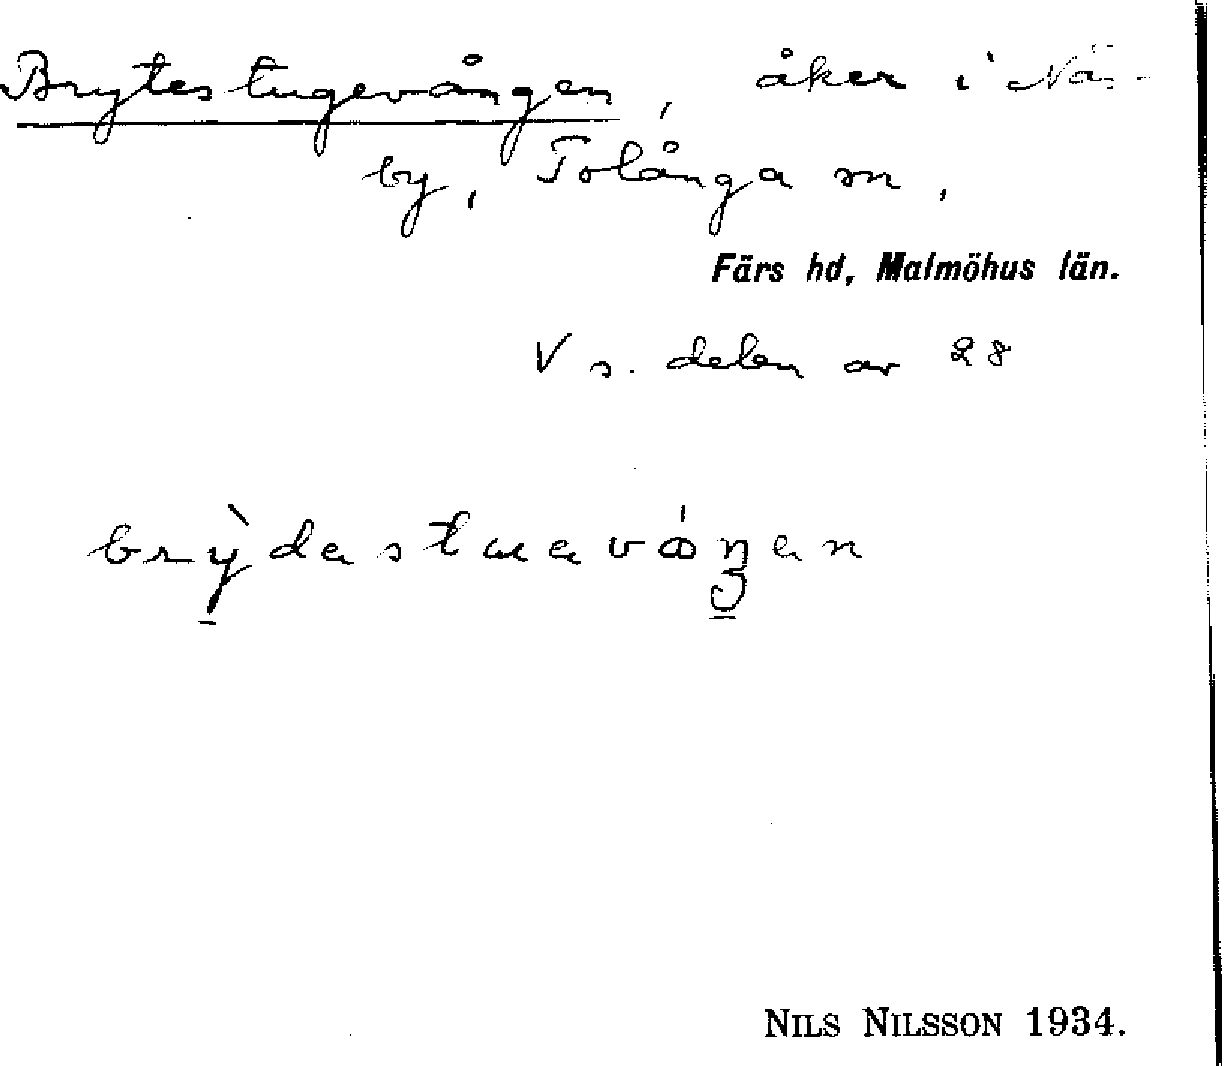 Brytestugevången, åker i Näs-
by, Tolånga sn,
Färs hd, Malmöhus län.
V s. delen av 28
brỳdastuaváŋen
NILS NILSSON 1934.